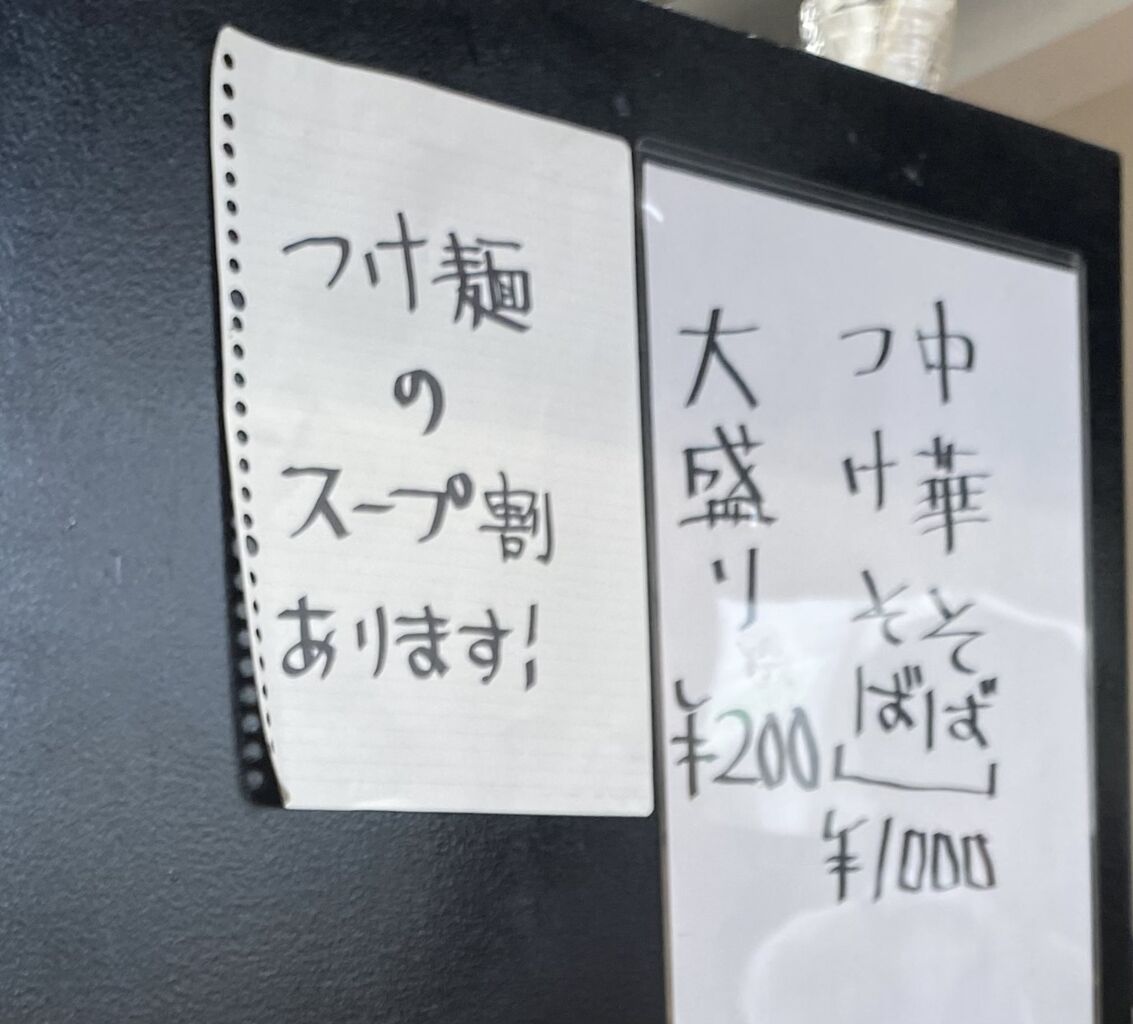 つけ麺
の
スープ割
あります!
中華そば
つけそば
¥1000
大盛り
¥200